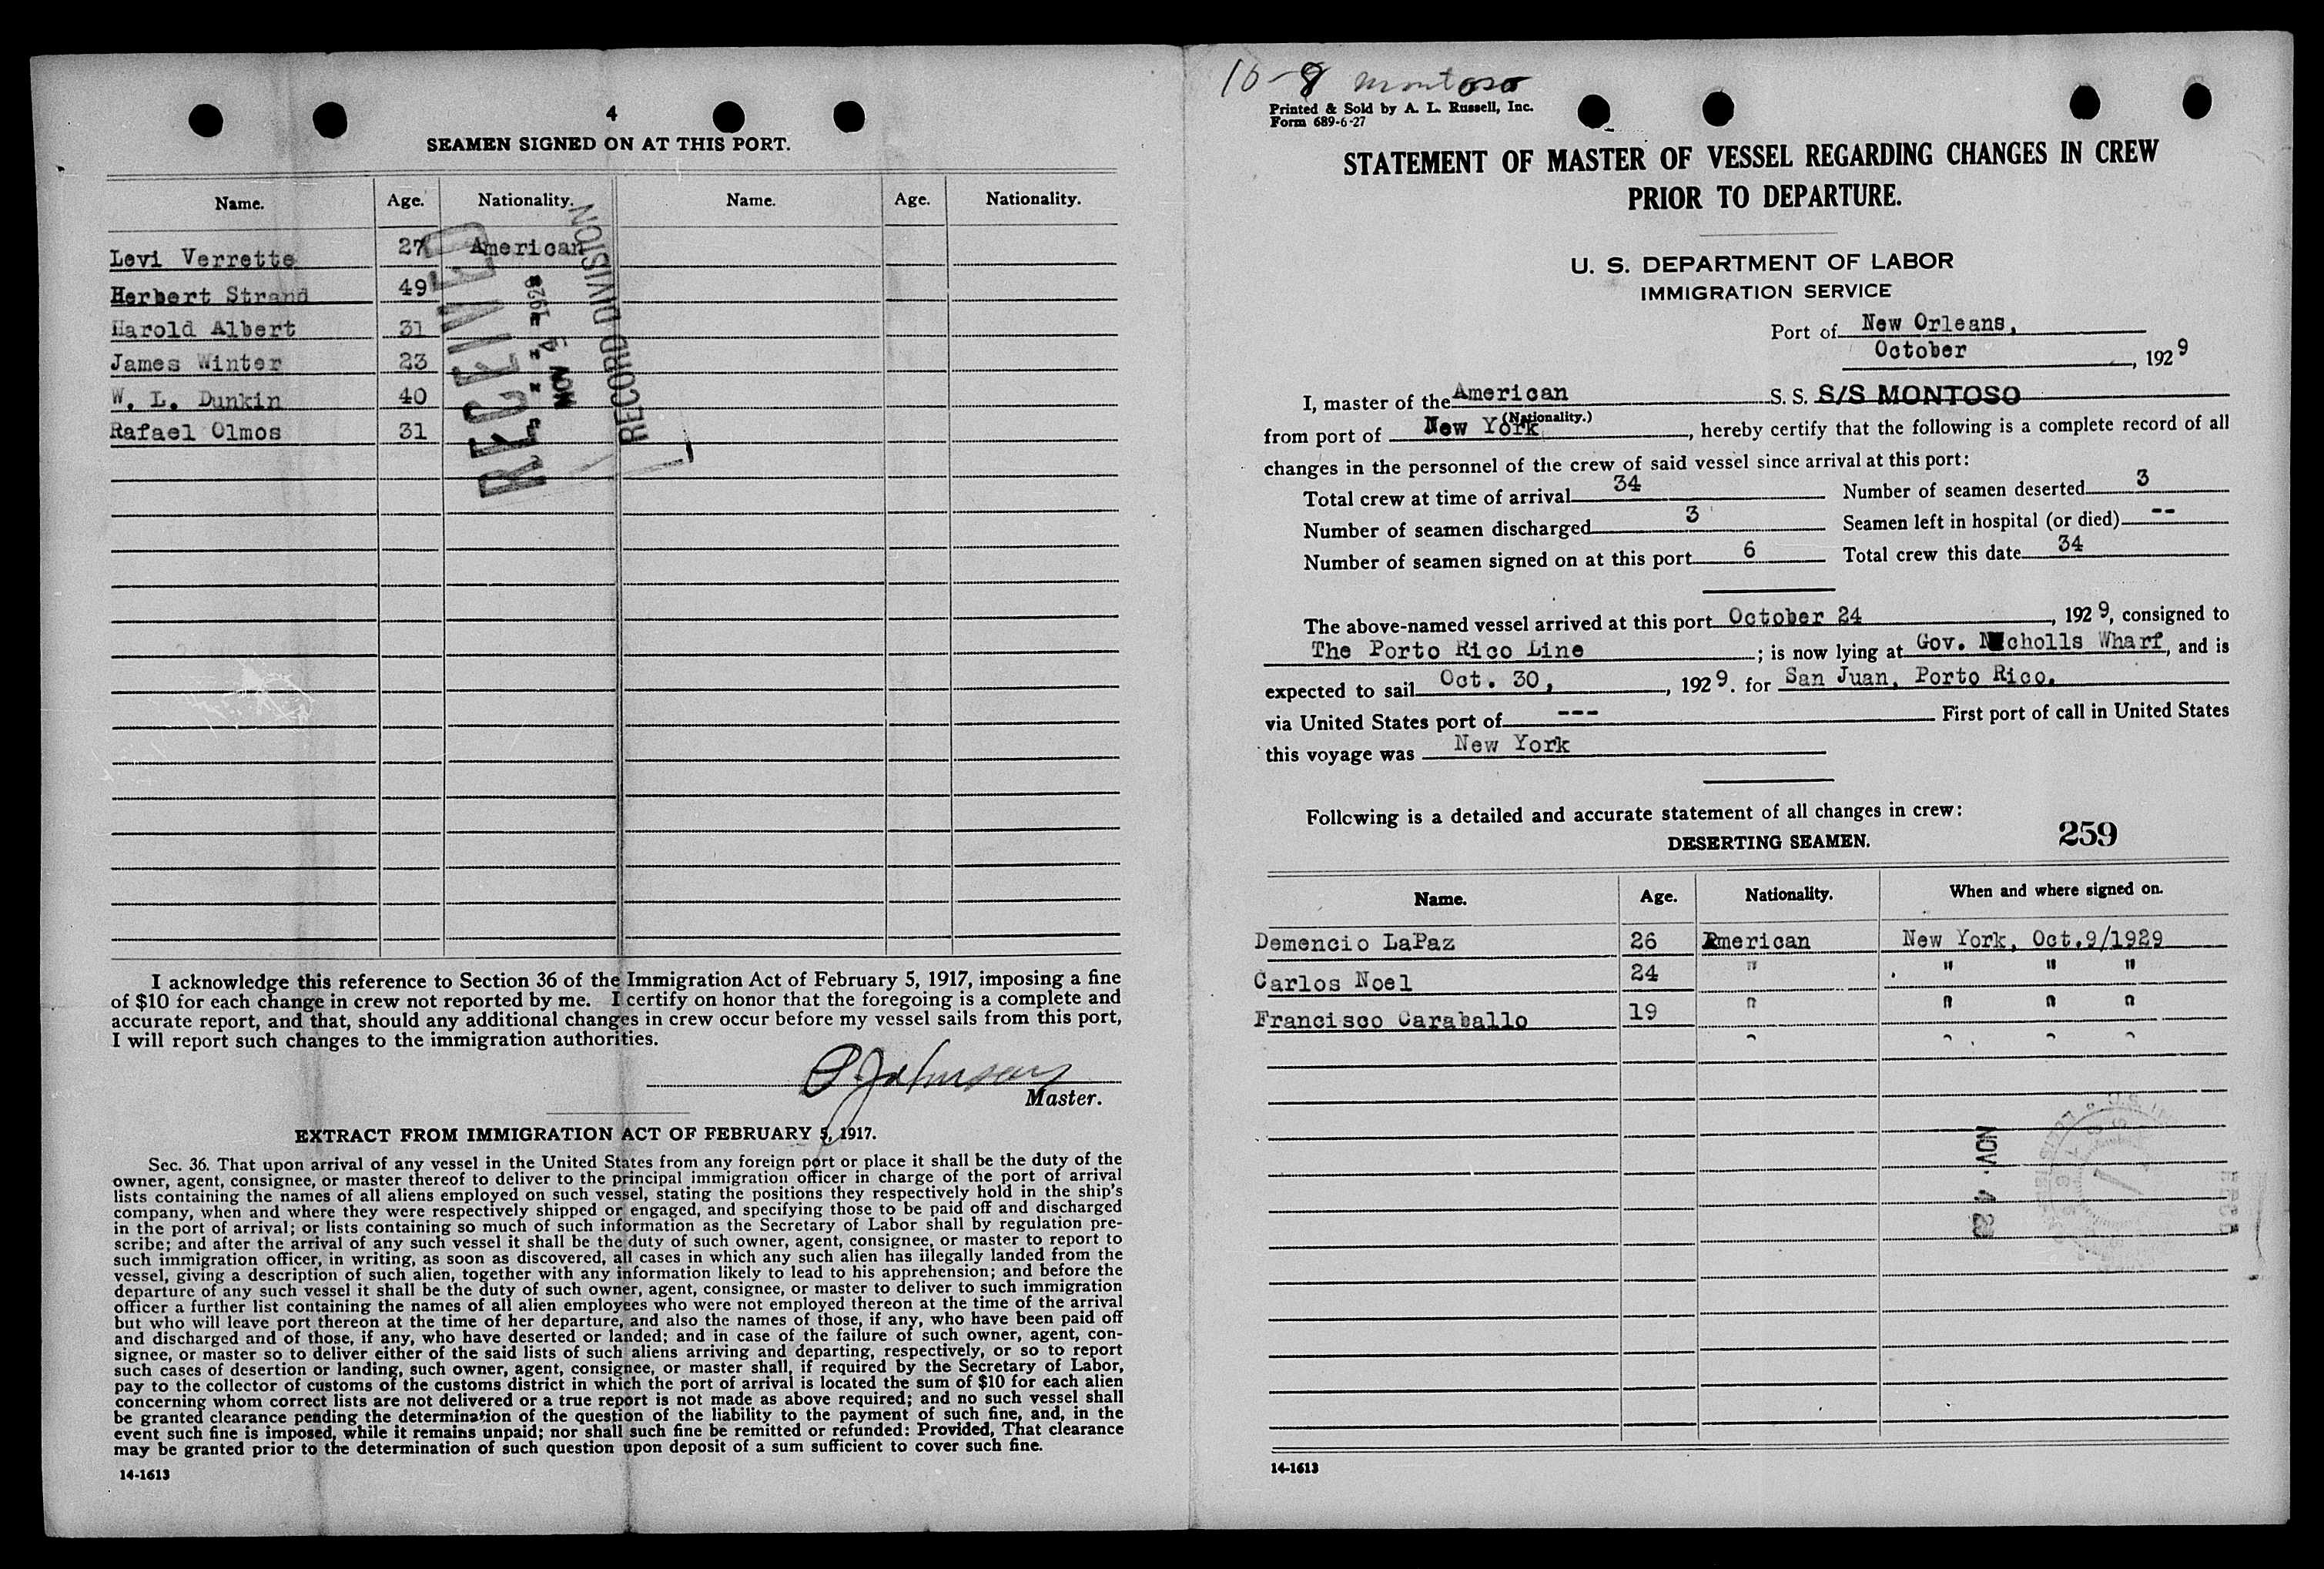 4
SEAMEN SIGNED ON AT THIS PORT.
Name. Age. Nationality. Name. Age. Nationality.
Levi Verrette 27 American
Herbert Strand 49
Harold Albert 31
James Winter 23
W. L. Dunkin 40
Rafael Olmos 31
RECEIVED
NOV 1929
RECORD DIVISION
I acknowledge this reference to Section 36 of the Immigration Act of February 5, 1917, imposing a fine
of $10 for each change in crew not reported by me. I certify on honor that the foregoing is a complete and
accurate report, and that, should any additional changes in crew occur before my vessel sails from this port,
I will report such changes to the immigration authorities.
Johnson
Master.
EXTRACT FROM IMMIGRATION ACT OF FEBRUARY 5, 1917.
Sec. 36. That upon arrival of any vessel in the United States from any foreign port or place it shall be the duty of the
owner, agent, consignee, or master thereof to deliver to the principal immigration officer in charge of the port of arrival
lists containing the names of all aliens employed on such vessel, stating the positions they respectively hold in the ship's
company, when and where they were respectively shipped or engaged, and specifying those to be paid off and discharged
in the port of arrival; or lists containing so much of such information as the Secretary of Labor shall by regulation pre-
scribe; and after the arrival of any such vessel it shall be the duty of such owner, agent, consignee, or master to report to
such immigration officer, in writing, as soon as discovered, all cases in which any such alien has illegally landed from the
vessel, giving a description of such alien, together with any information likely to lead to his apprehension; and before the
departure of any such vessel it shall be the duty of such owner, agent, consignee, or master to deliver to such immigration
officer a further list containing the names of all alien employees who were not employed thereon at the time of the arrival
but who will leave port thereon at the time of her departure, and also the names of those, if any, who have been paid off
and discharged and of those, if any, who have deserted or landed; and in case of the failure of such owner, agent, con-
signee, or master so to deliver either of the said lists of such aliens arriving and departing, respectively, or so to report
such cases of desertion or landing, such owner, agent, consignee, or master shall, if required by the Secretary of Labor,
pay to the collector of customs of the customs district in which the port of arrival is located the sum of $10 for each alien
concerning whom correct lists are not delivered or a true report is not made as above required; and no such vessel shall
be granted clearance pending the determination of the question of the liability to the payment of such fine, and, in the
event such fine is imposed, while it remains unpaid; nor shall such fine be remitted or refunded: Provided, That clearance
may be granted prior to the determination of such question upon deposit of a sum sufficient to cover such fine.
14-1613
10-8 Montoso
Printed & Sold by A. L. Russell, Inc.
Form 689-6-27
STATEMENT OF MASTER OF VESSEL REGARDING CHANGES IN CREW
PRIOR TO DEPARTURE.
U. S. DEPARTMENT OF LABOR
IMMIGRATION SERVICE
Port of New Orleans,
October , 1929
I, master of the American S. S. S/S MONTOSO
(Nationality.)
from port of New York, hereby certify that the following is a complete record of all
changes in the personnel of the crew of said vessel since arrival at this port:
Total crew at time of arrival 34 Number of seamen deserted 3
Number of seamen discharged 3 Seamen left in hospital (or died) --
Number of seamen signed on at this port 6 Total crew this date 34
The above-named vessel arrived at this port October 24, 1929, consigned to
The Porto Rico Line; is now lying at Gov. Nicholls Wharf, and is
expected to sail Oct. 30, , 1929. for San Juan, Porto Rico.
via United States port of --- First port of call in United States
this voyage was New York
Following is a detailed and accurate statement of all changes in crew:
DESERTING SEAMEN. 259
Name. Age. Nationality. When and where signed on.
Demencio LaPaz 26 American New York, Oct.9/1929
Carlos Noel 24 " " " "
Francisco Caraballo 19 " " " "
NOV. 4
14-1613